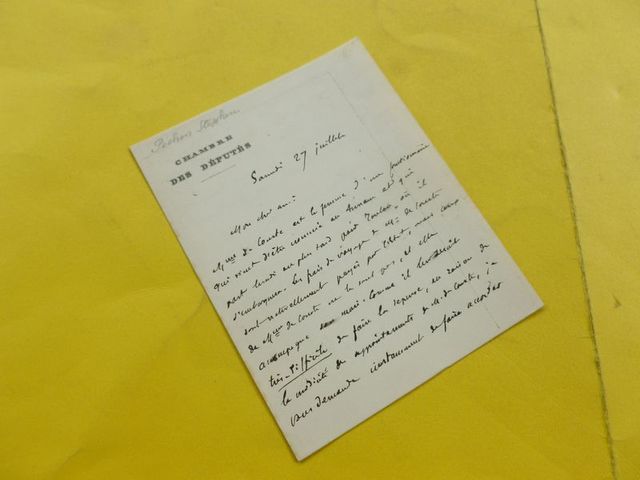 Pichon Stephen
CHAMBRE
DES DÉPUTÉS
Samedi 27 juillet
Mon cher ami :
Mme de Courte est la femme d'un fonctionnaire
qui vient d'être nommé au et qui
part lundi au plus tard pour Toulon où il
s'embarque. Les frais de voyage de Mr de Courte
sont naturellement payés par l'Etat, mais ceux
de Mme de Courte ne le sont pas, et elle
accompagne son mari. Comme il lui serait
très difficile de faire la dépense, en raison de
la modicité des appointements de M. de Courte, je
vous demande instamment de faire accorder